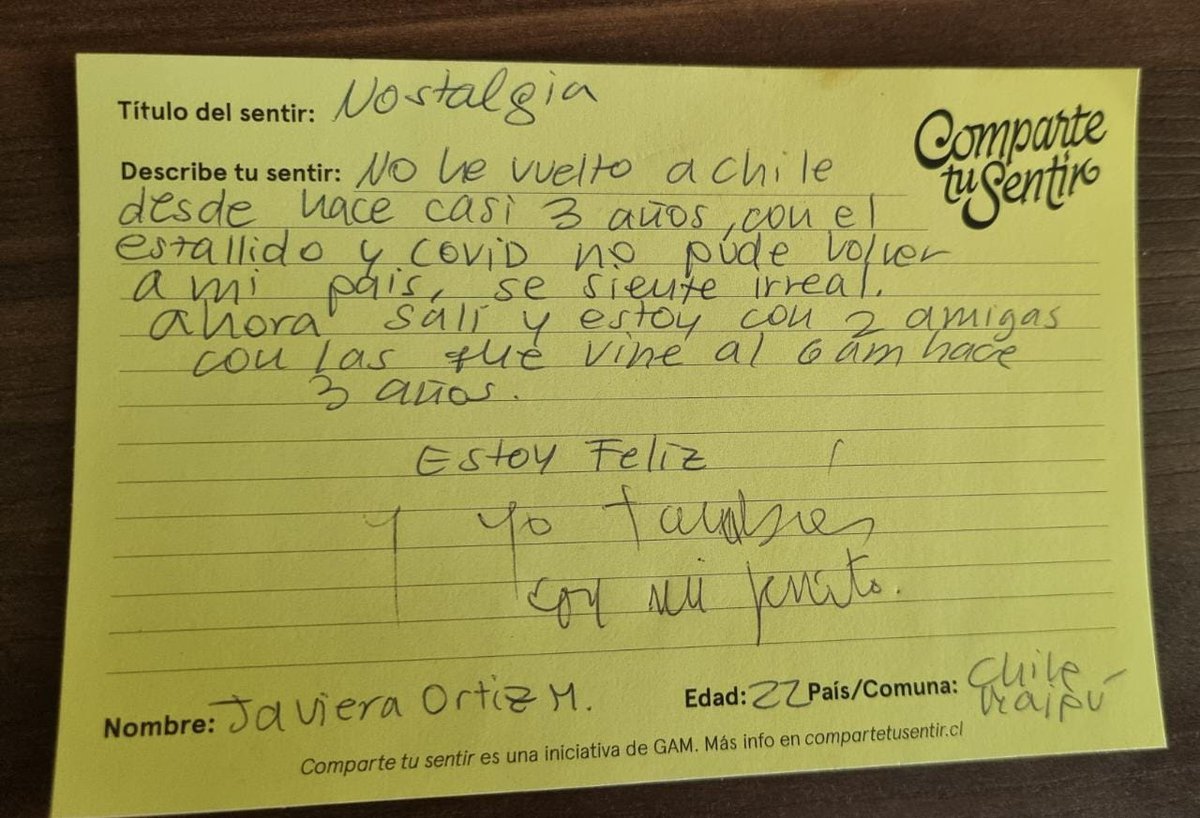 Título del sentir: Nostalgia
Comparte
tu Sentir
Describe tu sentir: No he vuelto a chile
desde hace casi 3 años, con el
estallido y COVID no pude volver
a mi pais, se siente irreal.
ahora salí y estoy con 2 amigas
con las que vine al Gam hace
3 años.
Estoy Feliz
y yo también
con mi
Nombre: Javiera Ortiz M. Edad: 22 País/Comuna: Chile
Maipú
Comparte tu sentir es una iniciativa de GAM. Más info en compartetusentir.cl